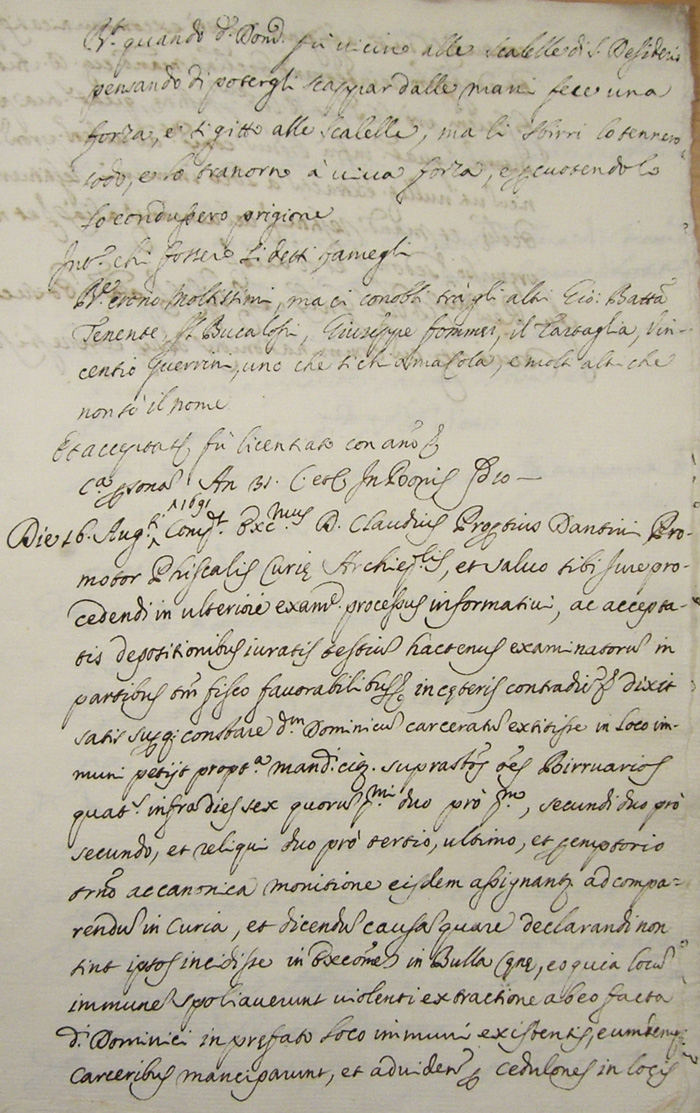 R.t quando d.o Dom.co fù vicino alle scalelle di S. Desiderio
pensando di potergli scappar dalle mani fece una
forza, e si gittò alle scalelle, ma li sbirri lo tennero
sodo, e lo à viva forza, e percuotendolo
lo condussero prigione
Int.s chi fossero li detti famegli
R.t erono moltissimi, ma ci conobbi trà gli altri Gio: Batta
Tenente, Giuseppe il Tartaglia, Vin-
centio Guerrini, uno che si chiama Cola, e molti altri che
non sò il nome
Et acceptatis fù licentiato con
An 31. C. etc. In Bonis
Die 16. Aug.ti ^1691 Comp.t Exc.mus D. Claudius Dantini Pro-
motor Phiscalis Curię Archie.lis, et salvo sibi Jure pro-
cedendi in ulteriore exam. processus informativi, ac accepta-
tis depositionibus iuratis testiu hactenus examinatoru in
partibus tm fisco favorabilibus, in cęteris contradic. dixit
satis constare d.m Dominicu carceratu extitisse in loco im-
muni petijt propt.a mand. citj. suprastos oes Birruarios
quat.s infra dies sex quoru p.mi duo prò p.mo, secundi duo prò
secundo, et reliqui duo prò tertio, ultimo, et peremptorio
trno ac canonica monitione eisdem assignant. ad compa-
rendu in Curia, et dicendu causa quare declarandi non
sint ipsos incidisse in Excome in Bulla, eo quia locu
immune spoliaverunt violenti extractione ab eo facta
d.i Dominici in prefato loco immuni existentis, eumdemq
Carceribus manciparunt, et ad viden. cedulones in locis